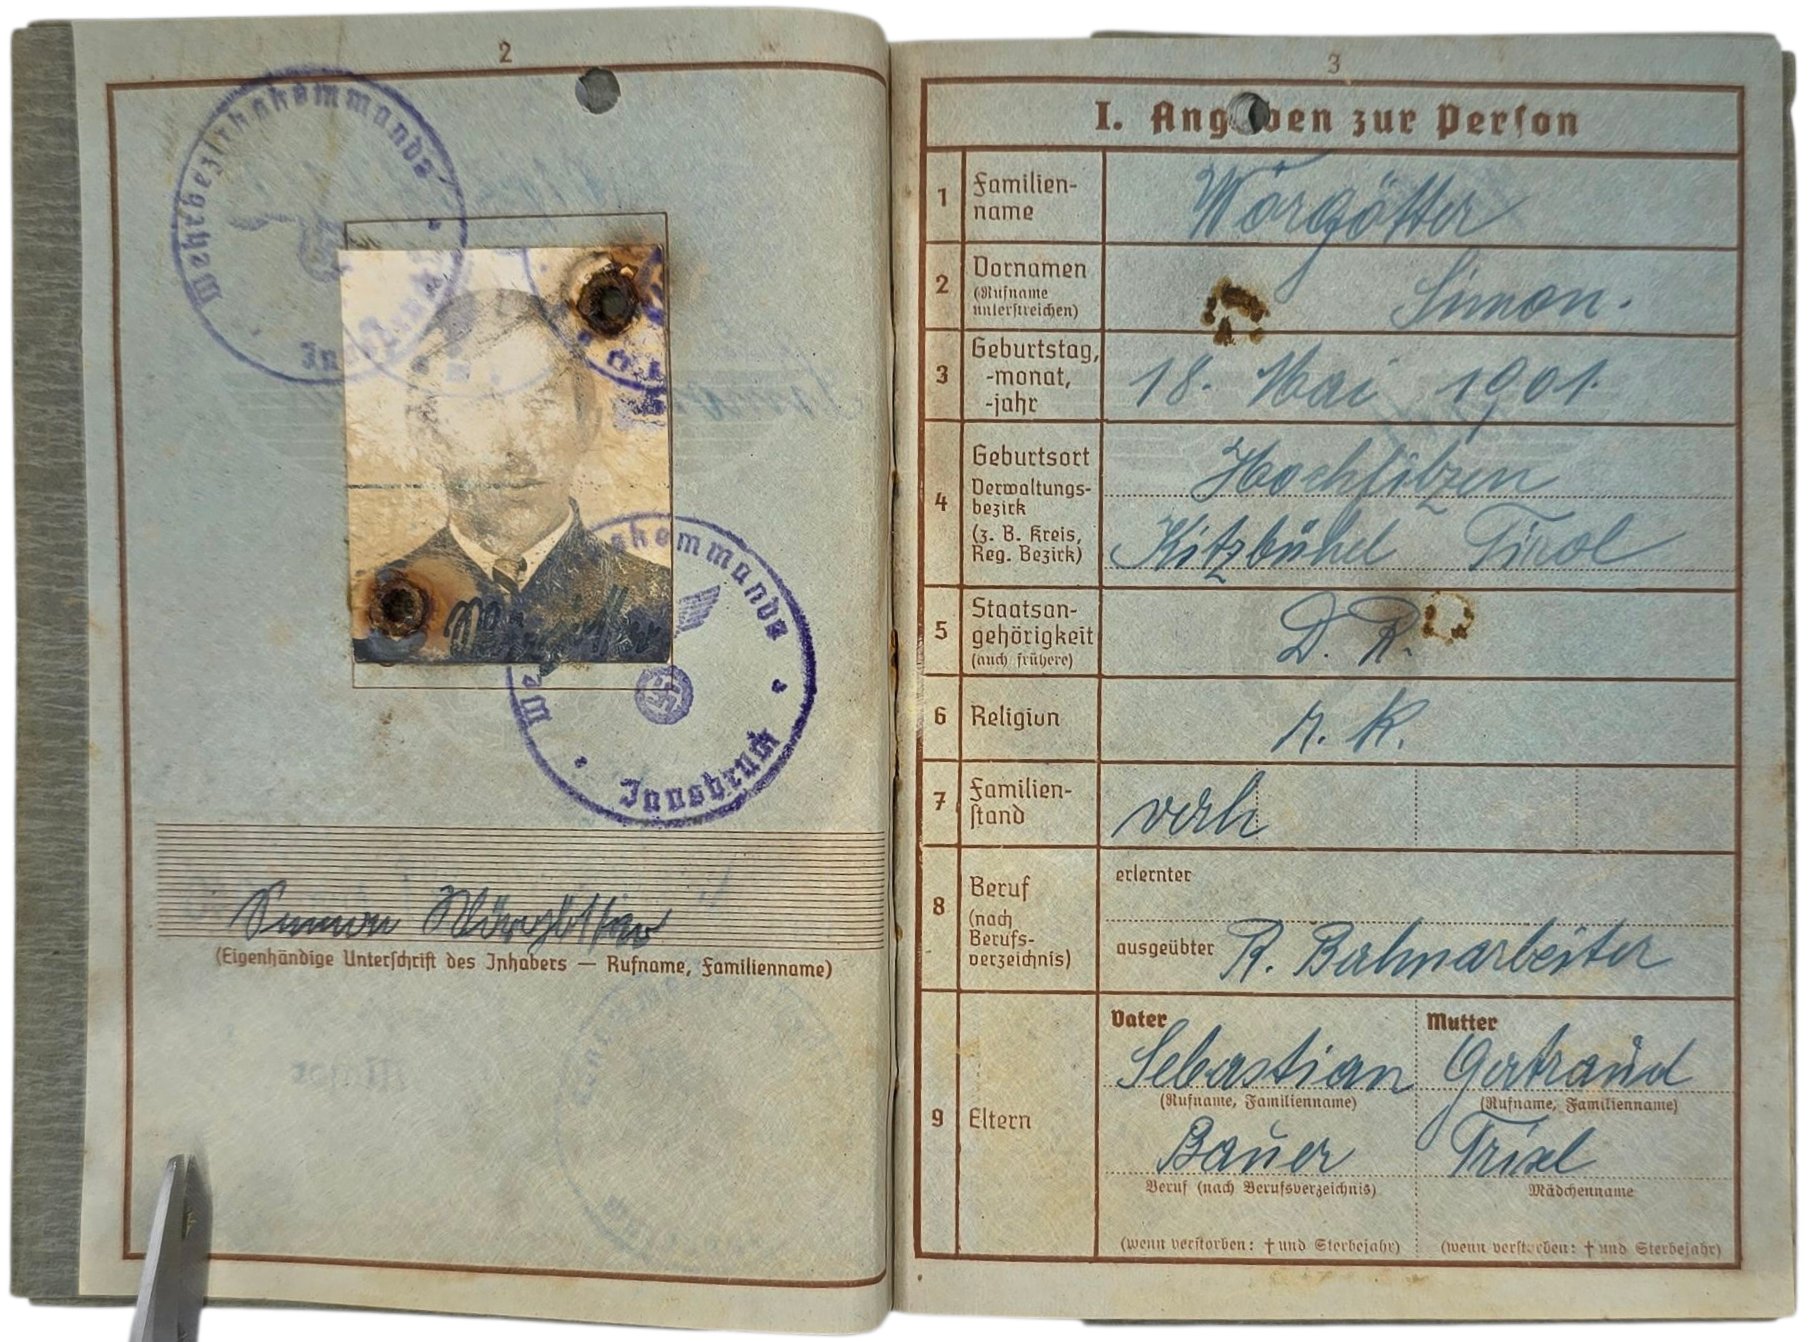 2
Wehrbezirkskommando
Innsbruck
kommando
Innsbruck
Simon Wörgötter
(Eigenhändige Unterschrift des Inhabers — Rufname, Familienname)
3
I. Angaben zur Person
1 Familien-
name
Wörgötter
2 Vornamen
(Rufname
unterstreichen)
Simon.
3 Geburtstag,
-monat,
-jahr
18. Mai 1901.
4 Geburtsort
Verwaltungs-
bezirk
(z. B. Kreis,
Reg. Bezirk)
Hochfilzen
Kitzbühel Tirol
5 Staatsan-
gehörigkeit
(auch frühere)
D. R.
6 Religion
r. k.
7 Familien-
stand
verh
8 Beruf
(nach
Berufs-
verzeichnis)
erlernter
ausgeübter R. Bahnarbeiter
9 Eltern
Vater
Sebastian
(Rufname, Familienname)
Bauer
Beruf (nach Berufsverzeichnis)
(wenn verstorben: † und Sterbejahr)
Mutter
Gertraud
(Rufname, Familienname)
Trixl
Mädchenname
(wenn verstorben: † und Sterbejahr)